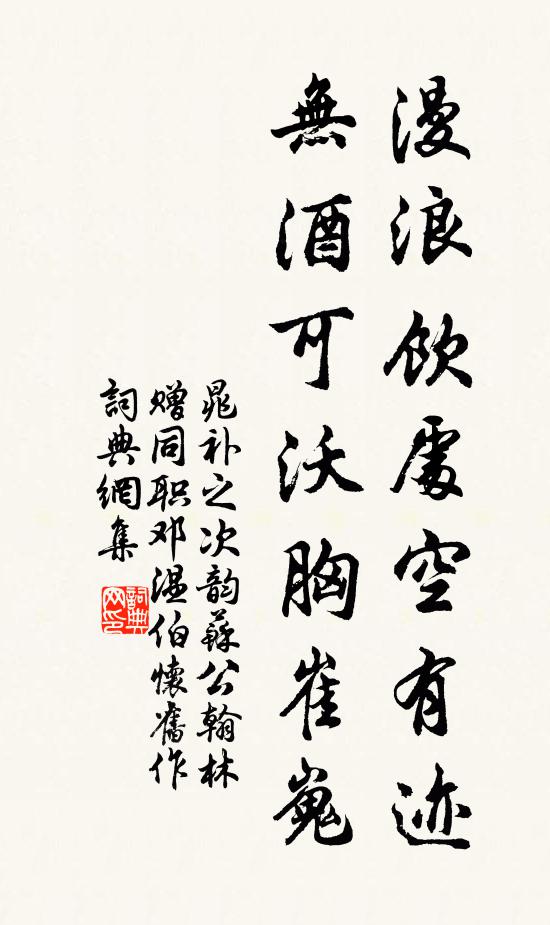 漫浪飲處空有迹
無酒可沃胸崔嵬
晁补之次韵蘇公翰林
赠同职邓温伯懷舊作
詞典網集
詞典网印